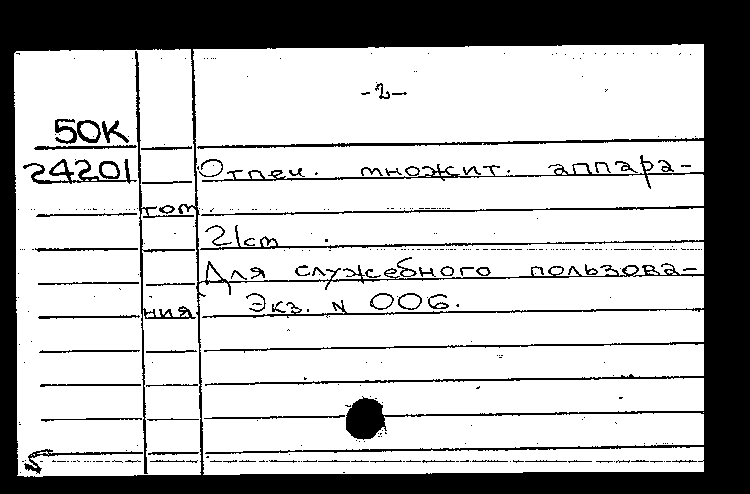 -2-
50К
24201 Отпеч. множит. аппара-
том.
21cm.
Для служебного пользова-
ния. Экз. N 006.